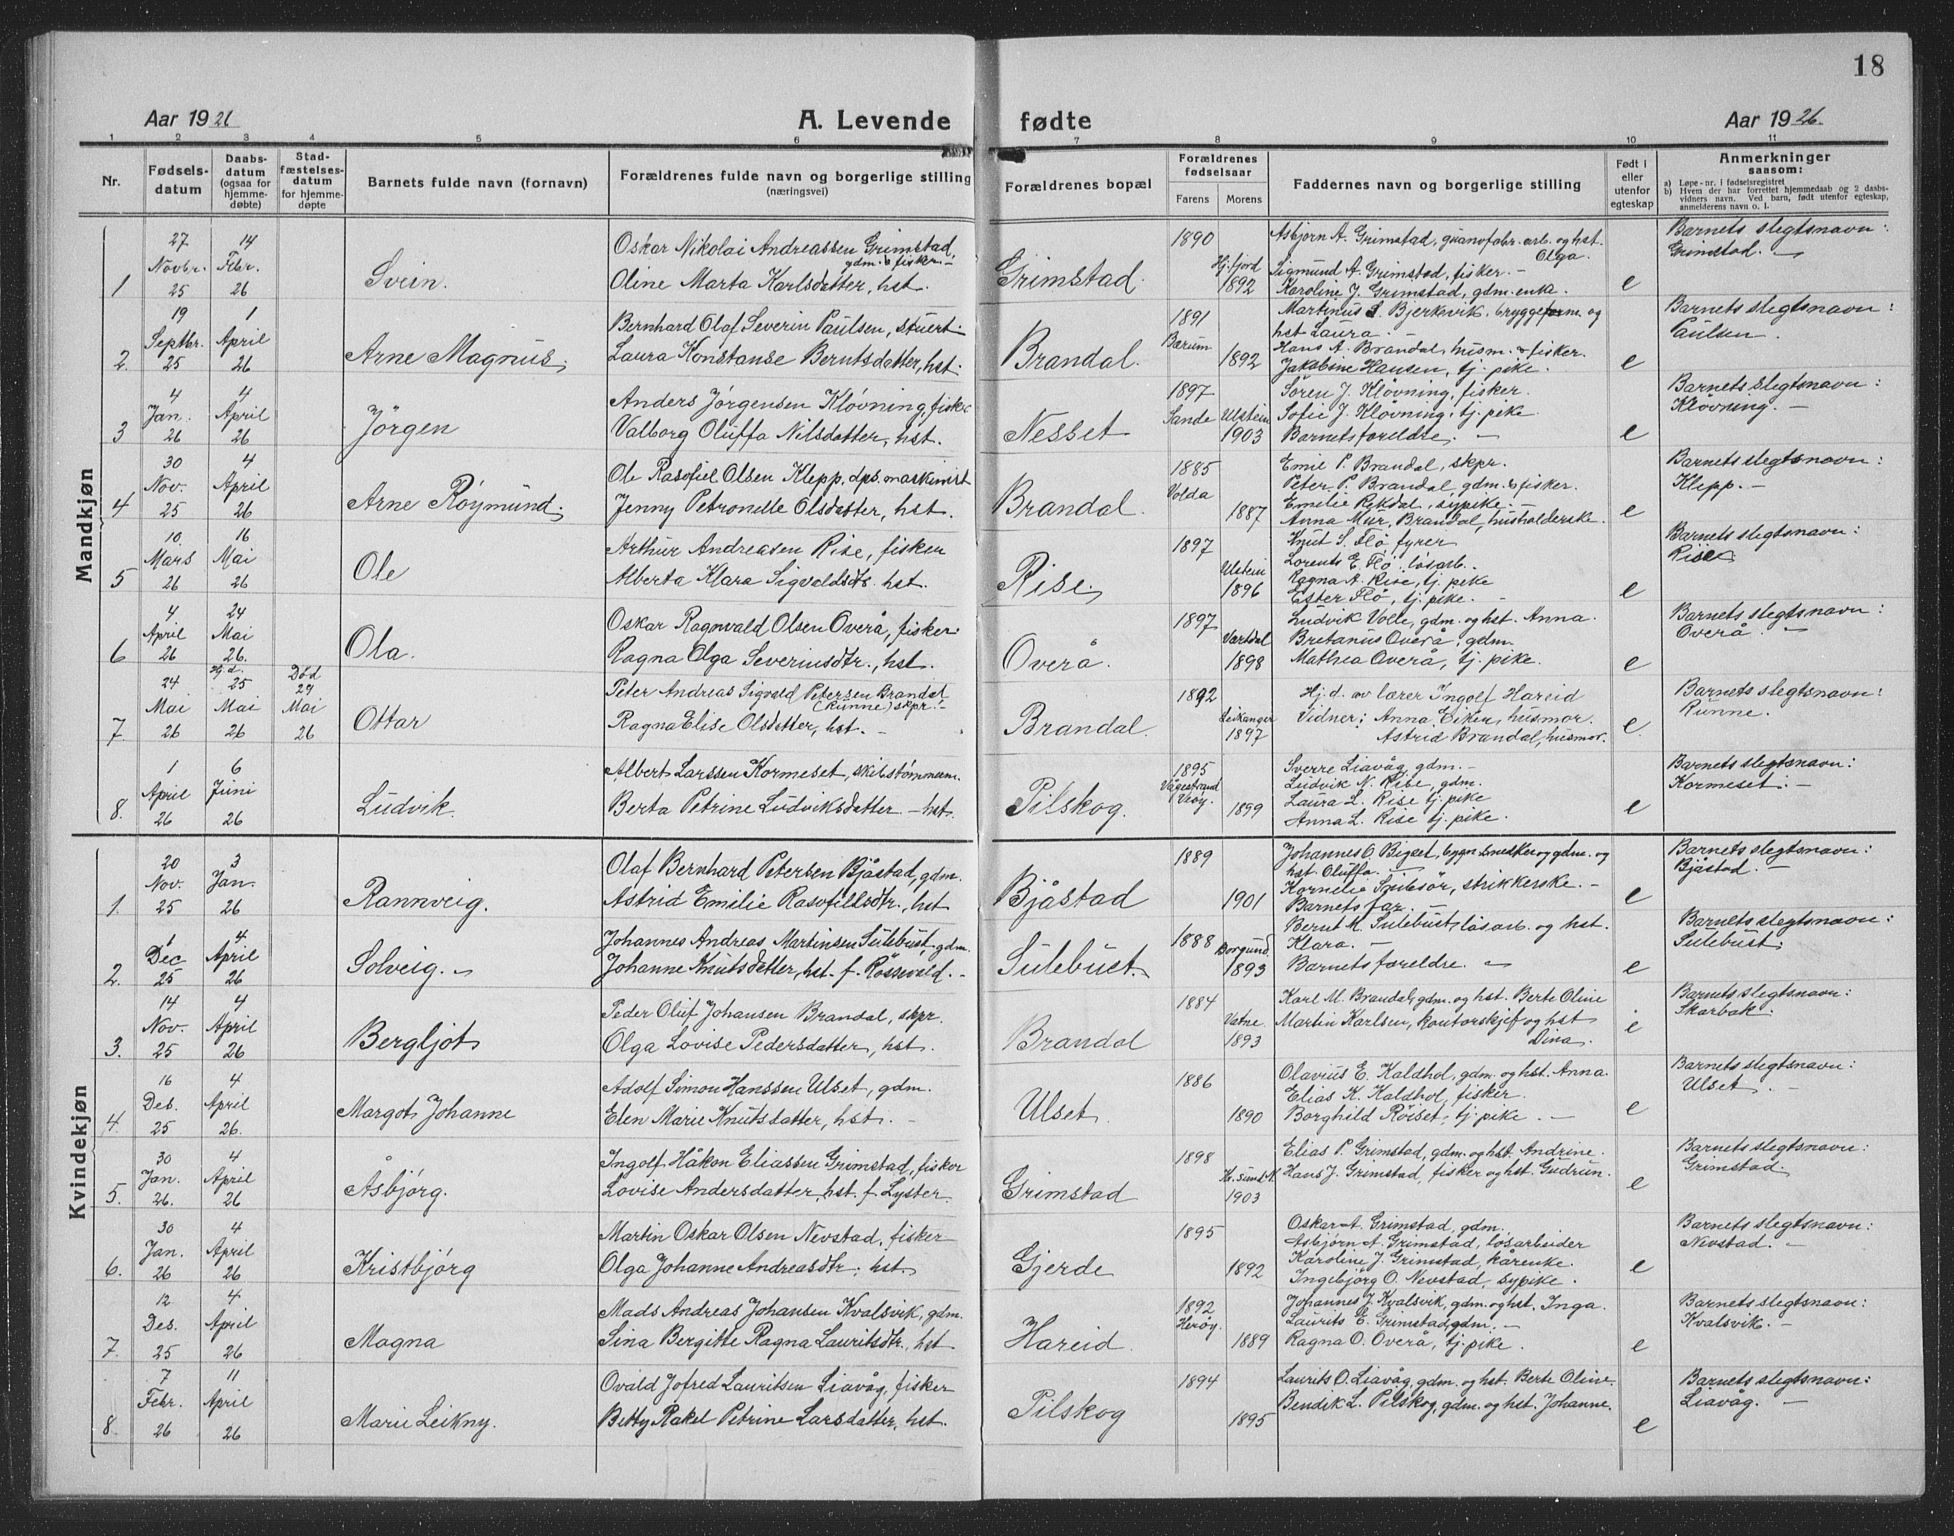 18
Aar 1926 A. Levende fødte Aar 1926.
1 2 3 4 5 6 7 8 9 10 11
Nr. Fødselsdatum Daabsdatum (ogsaa for hjemmedøbte) Stadfæstelsesdatum for hjemmedøpte Barnets fulde navn (fornavn) Forældrenes fulde navn og borgerlige stilling (næringsvei) Forældrenes bopæl Forældrenes fødselsaar Farens Morens Faddernes navn og borgerlige stilling Født i eller utenfor egteskap Anmerkninger saasom:
a) Løpe-nr. i fødselsregistret
b) Hvem der har forrettet hjemmedaab og 2 daabsvidners navn. Ved barn, født utenfor egteskap, anmelderens navn o. l.
Mandkjøn
1 27 Novbr. 25 14 Febr. 26 Svein.
Oskar Nikolai Andreassen Grimstad, gdm. & fisker.
Oline Marta Karlsdatter, hst.
Grimstad. 1890 Hj.fjord 1892
Asbjørn A. Grimstad, guanofabr. arb. og hst. Olga.
Sigmund A. Grimstad, fisker. –
Karoline J. Grimstad, gdm. enke.
e Barnets slegtsnavn: Grimstad. –
2. 19 Septbr. 25 1 April 26 Arne Magnus.
Bernhard Olaf Severin Paulsen, stuert.
Laura Konstanse Berntsdatter, hst.
Brandal. 1891 Bærum 1892
Martinus S. Bjerkvik, bryggeform. og
hst Laura. –
Hans A. Brandal, husm. & fisker.
Jakobine Hansen, tj. pike.
e Barnets slegtsnavn: Paulsen.
3 4 Jan. 26 4 April 26 Jörgen
Anders Jörgensen Klövning, fisker
Valborg Oluffa Nilsdatter, hst.
Nesset 1897 Sande Ulstein 1903
Sören J. Klövning, fisker.
Sofie J. Klövning, tj. pike
Barnets foreldre. –
e Barnets slegtsnavn: Klövning. –
4 30 Nov. 25 4 April 26 Arne Röymund.
Ole Rasofiel Olsen Klepp, dps. maskinist
Jenny Petronelle Olsdatter, hst.
Brandal. 1885 Volda 1887
Emil P. Brandal, skpr.
Peter P. Brandal, gdm. & fisker.
Emilie Rekdal, sypike. –
Anna Mur, Brandal, husholderske.
e Barnets slegtsnavn: Klepp. –
5 10. Mars 26 16 Mai 26 Ole
Arthur Andreasen Rise, fisker
Alberta Klara Sigvaldsdtr. hst.
Rise. 1897 Ulstein 1896
Knut S. Flö fyrer
Lorents E. Flö, lösarb.
Ragna A. Rise, tj. pike
Ester Flö, tj. pike. –
e Barnets slegtsnavn: Rise
6 4 April 26 24 Mai 26. Ola.
Oskar Ragnvald Olsen Overå, fisker
Ragna Olga Severinsdtr., hst.
Overå. 1897 Vartdal 1898
Ludvik Volle, gdm. og hst. Anna.
Bretanus Overå, gdm.
Mathea Overå, tj. pike.
e Barnets slegtsnavn: Overå. –
7. 24 Mai 26 Hj.d. 25 Mai 26 Död 27 Mai 26 Ottar
Peter Andreas Sigvald Petersen Brandal (Runne) skpr. –
Ragna Elise Olsdatter, hst. –
Brandal. 1892 Leikanger 1897
Hj. d. av lærer Ingolf Hareid
Vidner: Anna Eiken, husmor.
Astrid Brandal, husmor.
e. Barnets slegtsnavn: Runne.
8. 1 April 26 6 Juni 26 Ludvik.
Albert Larssen Kormeset, skibstømmerm.
Berta Petrine Ludviksdatter – hst.
Pilskog. 1895 Vågestrand Veöy. 1899
Sverre Liavåg, gdm. –
Ludvik N. Rise, gdm.
Laura L. Rise tj. pike
Anna L. Rise tj. pike.
e Barnets slegtsnavn: Kormeset. –
Kvindekjøn
1. 20 Nov. 25 3 Jan. 26 Rannveig.
Olaf Bernhard Petersen Bjåstad, gdm.
Astrid Emilie Rasofielsdtr., hst
Bjåstad 1889 1901
Johannes O. Bigset, bygn. snekker og gdm. og
hst. Oluffa. –
Kornelie Sulesör, strikkerske. –
Barnets far. –
e Barnets slegtsnavn: Bjåstad. –
2. 1 Dec 25 4 April 26 Solveig. –
Johannes Andreas Martinsen Sulebust, gdm.
Johanne Knutsdatter, hst. f. Rössevold. –
Sulebust. 1888 Borgund. 1893
Bernt M. Sulebust, lösarb. og hst.
Klara. –
Barnets foreldre. –
e Barnets slegtsnavn: Sulebust.
3. 14 Nov. 25 4 April 26 Bergljot
Peder Oluf Johansen Brandal, skpr.
Olga Lovise Pedersdatter, hst.
Brandal 1884 Vatne 1893
Karl M. Brandal, gdm. og hst. Berte Oline
Martin Karlsen, kontorskjef og hst
Dina.
e Barnets slegtsnavn: Skarbak.
4. 16 Des. 25 4 April 26. Margot Johanne
Adolf Simon Hanssen Ulset, gdm.
Elen Marie Knutsdatter, hst. –
Ulset. 1886 1890
Olavius E. Kaldhol, gdm. og hst. Anna.
Elias K. Kaldhol, fisker.
Borghild Röiset, tj. pike. –
e Barnets slegtsnavn: Ulset. –
5. 30 Jan. 26. 4 April 26 Åsbjörg.
Ingolf Håkon Eliassen Grimstad, fisker
Lovise Andersdatter, hst. f. Lyster.
Grimstad 1898 Kr. sund N. 1903
Elias P. Grimstad, gdm. og hst. Andrine.
Hans J. Grimstad, fisker og hst. Gudrun.
e Barnets slegtsnavn: Grimstad.
6. 30 Jan. 26 4 April 26 Kristbjörg
Martin Oskar Olsen Nevstad, fisker
Olga Johanne Andreasdtr. hst.
Gjerde 1895 1892
Oskar A. Grimstad, gdm.
Asbjørn A. Grimstad, lösarbeider
Karoline J. Grimstad, kårenke.
Ingebjörg O. Nevstad, sypike.
e Barnets slegtsnavn: Nevstad. –
7. 12 Des. 25 4 April 26 Magna
Mads Andreas Johansen Kvalsvik, gdm.
Sina Bergitte Ragna Lauritsdtr., hst
Hareid. 1892 Heröy. 1889
Johannes J. Kvalsvik, gdm. og hst. Inga.
Laurits E. Grimstad, gdm. –
Ragna O. Overå, tj. pike.
e Barnets slegtsnavn: Kvalsvik. –
8 7 Febr. 26 11 April 26 Marie Leikny.
Ovald Jofred Lauritsen Liavåg, fisker
Betty Rakel Petrine Larsdatter, hst.
Pilskog 1894 1895
Laurits O. Liavåg, gdm. og hst. Berte Oline.
Bendik L. Pilskog, gdm. og hst. Johanne.
e Barnets slegtsnavn: Liavåg. –